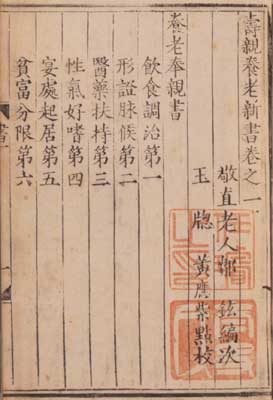 壽親養老新書卷之一
敬直老人鄒 鉉編次
玉牕 黃應紫點校
養老奉親書
飲食調治第一
形證脉候第二
醫藥扶持第三
性氣好嗜第四
宴處起居第五
貧富分限第六
書一
一